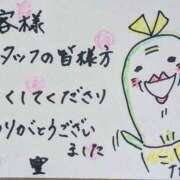 客様
スタッフの皆様方
くしてくださり
ありがとうござい
ました